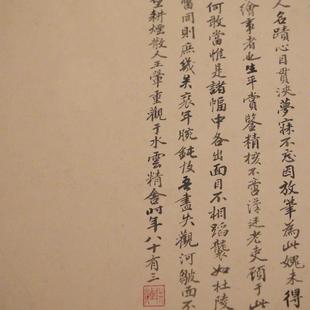 人名蹟心目貫浹夢寐不忘因放筆為此媿未得
繪事者也生平賞鑒精核不啻漢廷老吏顧于此
何敢當惟是諸幅中各出面目不相蹈襲如杜陵
同則庶幾矣衰年腕鈍故吾盡失觀河皺面不
耕煙散人王翬重觀于水雲精舍時年八十有三